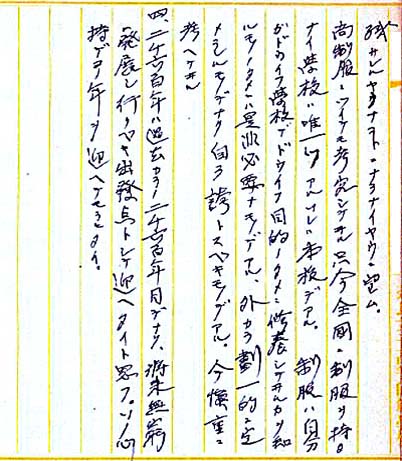 残サレルヤウナコトニナラナイヤウニ望ム。
尚制服ニツイテモ考究シテヰル只今全国ニ制服ヲ持タ
ナイ学校ハ唯一ツアルソレハ本校デアル。制服ハ自分
ガドウイフ学校デドウイフ目的ノタメニ修養シテヰルカヲ知
ルモノノタメニハ是非必要ナモノデアル、外カラ劃一的ニ定
メラレルモノデナク自ラ誇トスベキモノデアル。今慎重ニ
考ヘテヰル
四、二千六百年ハ過去カラノ二千六百年目デナク、将来無窮
ニ発展シ行クベキ出発点トシテ迎ヘタイト思フ。ソノ心
持デコノ年ヲ迎ヘテモラヒタイ。